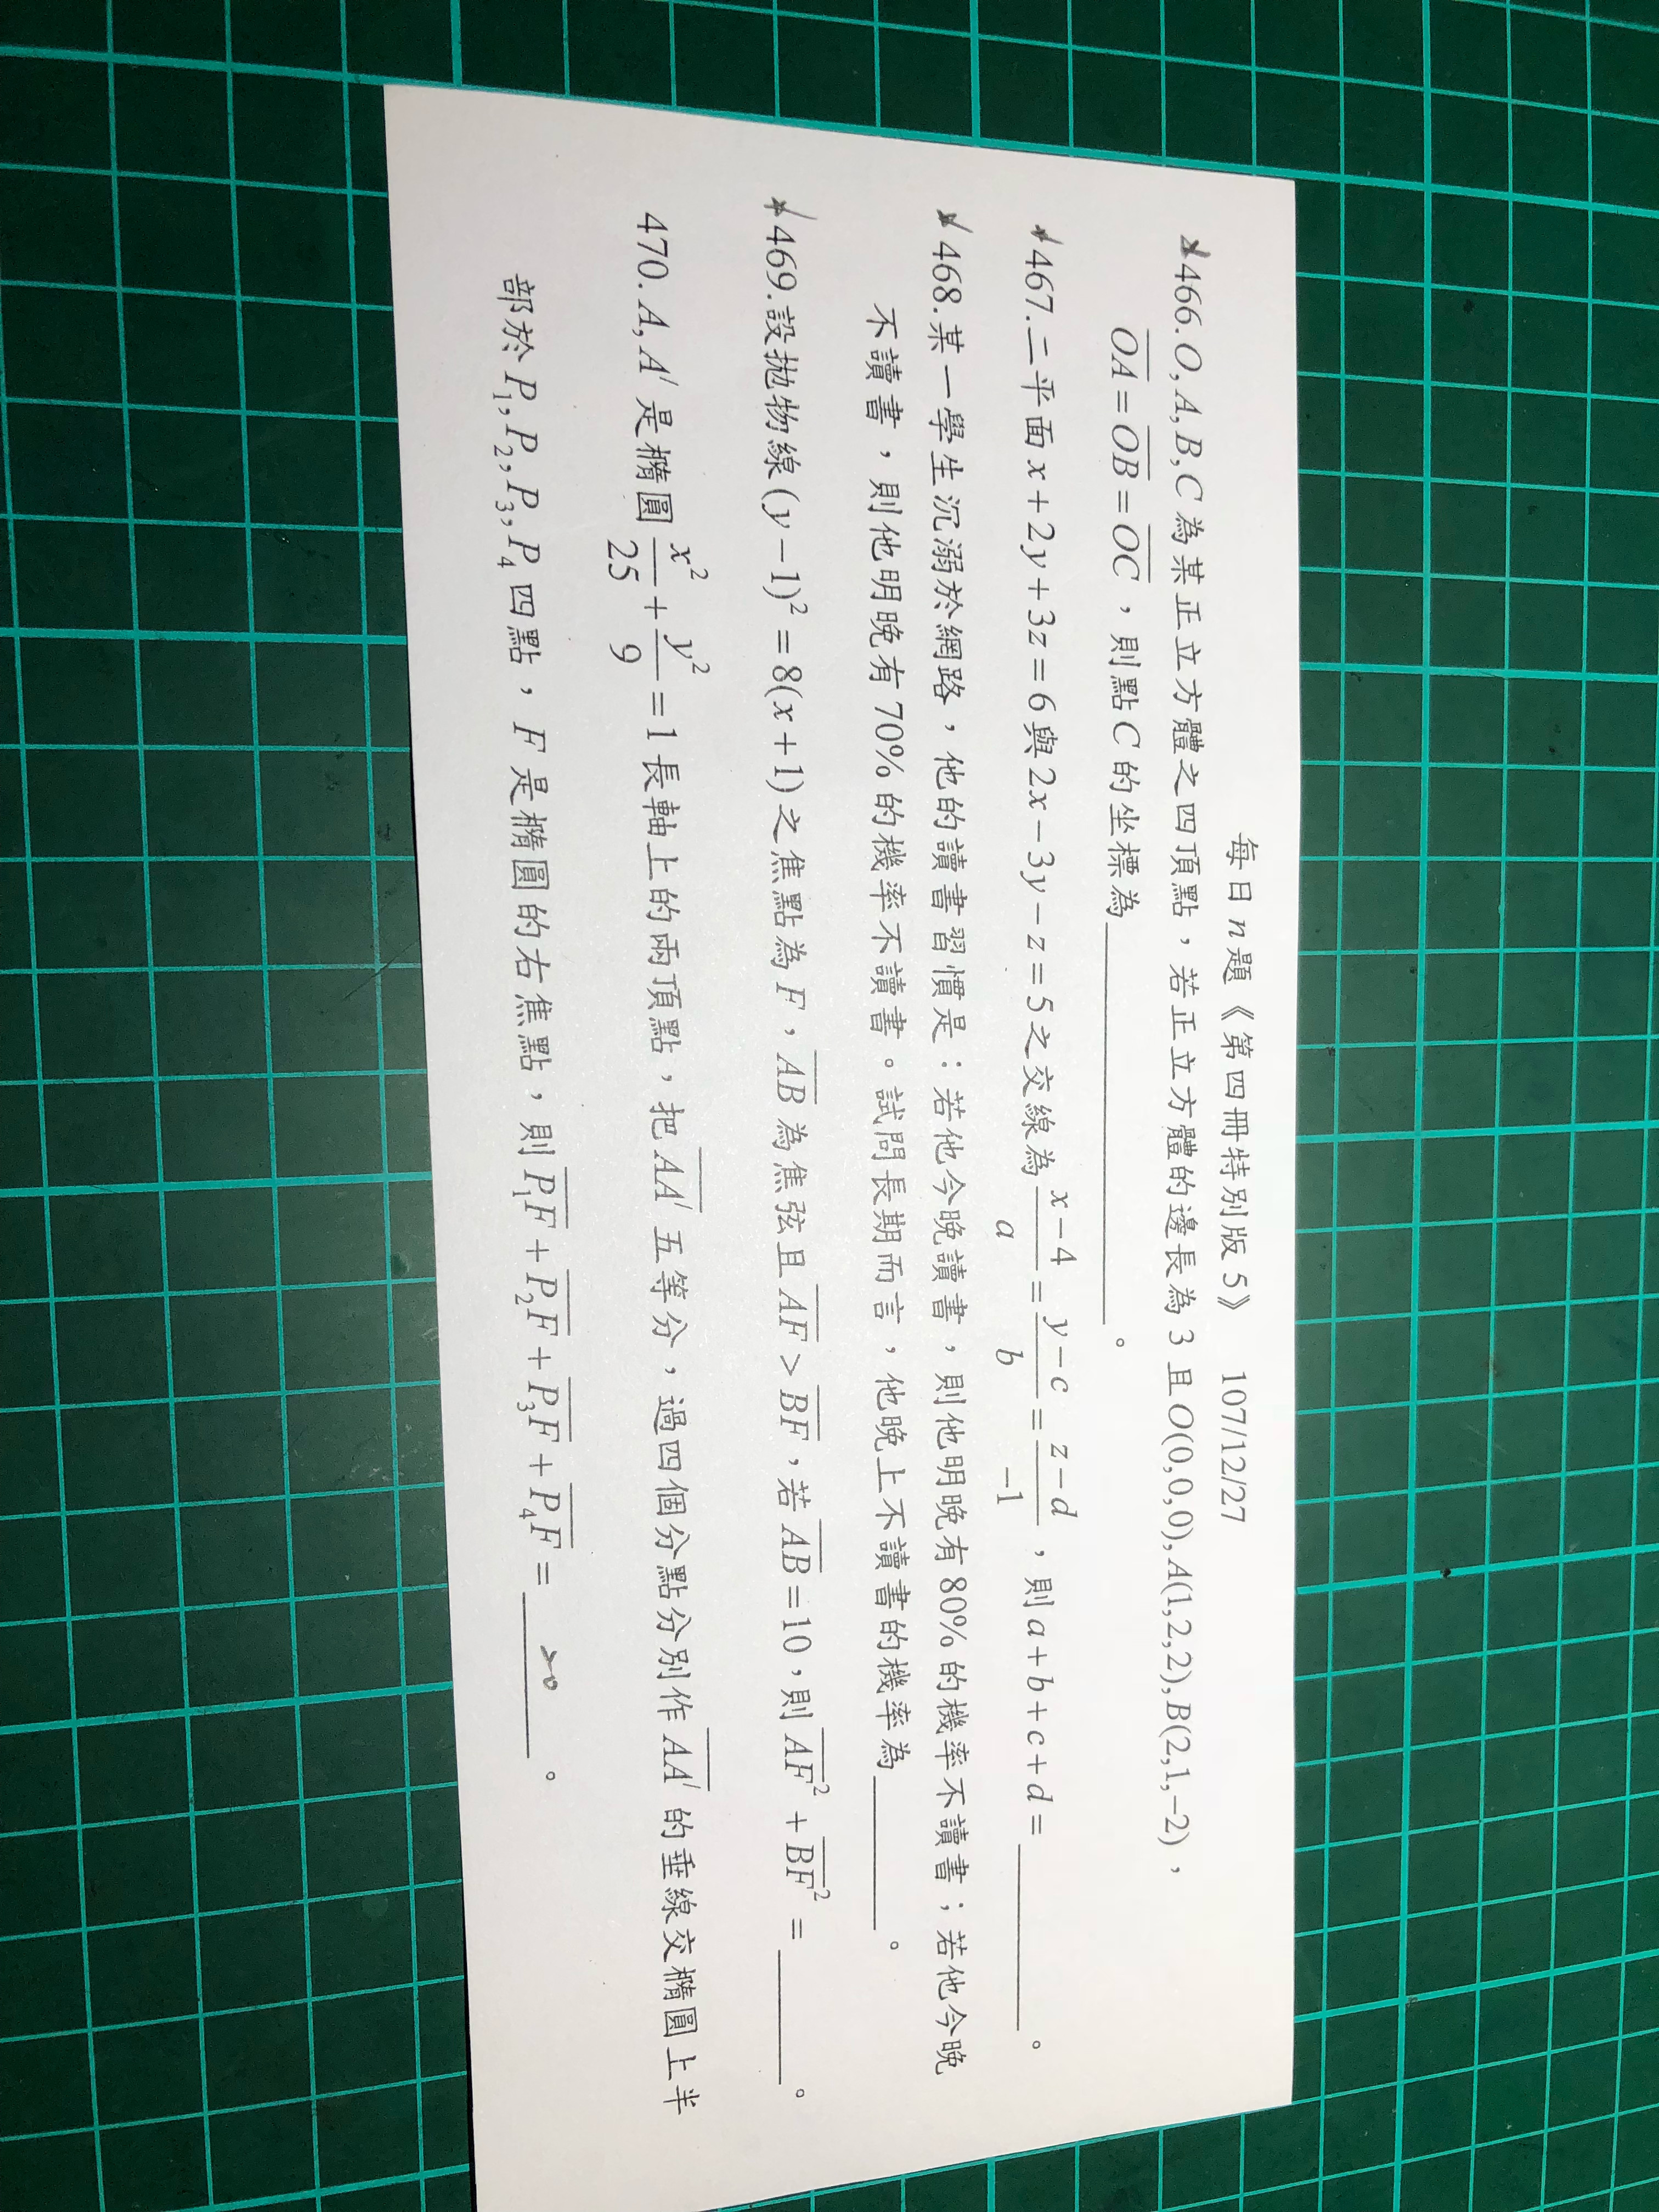 每日n題《第四冊特別版5》 107/12/27
466. O, A, B, C 為某正立方體之四頂點，若正立方體的邊長為 3 且 O(0,0,0), A(1,2,2), B(2,1,−2)，
OA = OB = OC，則點 C 的坐標為__________。
467. 二平面 x + 2y + 3z = 6 與 2x − 3y − z = 5 之交線為 (x−4)/a = (y−c)/b = (z−d)/−1，則 a + b + c + d = __________。
468. 某一學生沉溺於網路，他的讀書習慣是：若他今晚讀書，則他明晚有 80% 的機率不讀書；若他今晚
不讀書，則他明晚有 70% 的機率不讀書。試問長期而言，他晚上不讀書的機率為__________。
469. 設拋物線 (y − 1)² = 8(x + 1) 之焦點為 F，AB 為焦弦且 AF > BF，若 AB = 10，則 AF² + BF² = __________。
470. A, A′ 是橢圓 x²/25 + y²/9 = 1 長軸上的兩頂點，把 AA′ 五等分，過四個分點分別作 AA′ 的垂線交橢圓上半
部於 P₁, P₂, P₃, P₄ 四點，F 是橢圓的右焦點，則 P₁F + P₂F + P₃F + P₄F = 20。